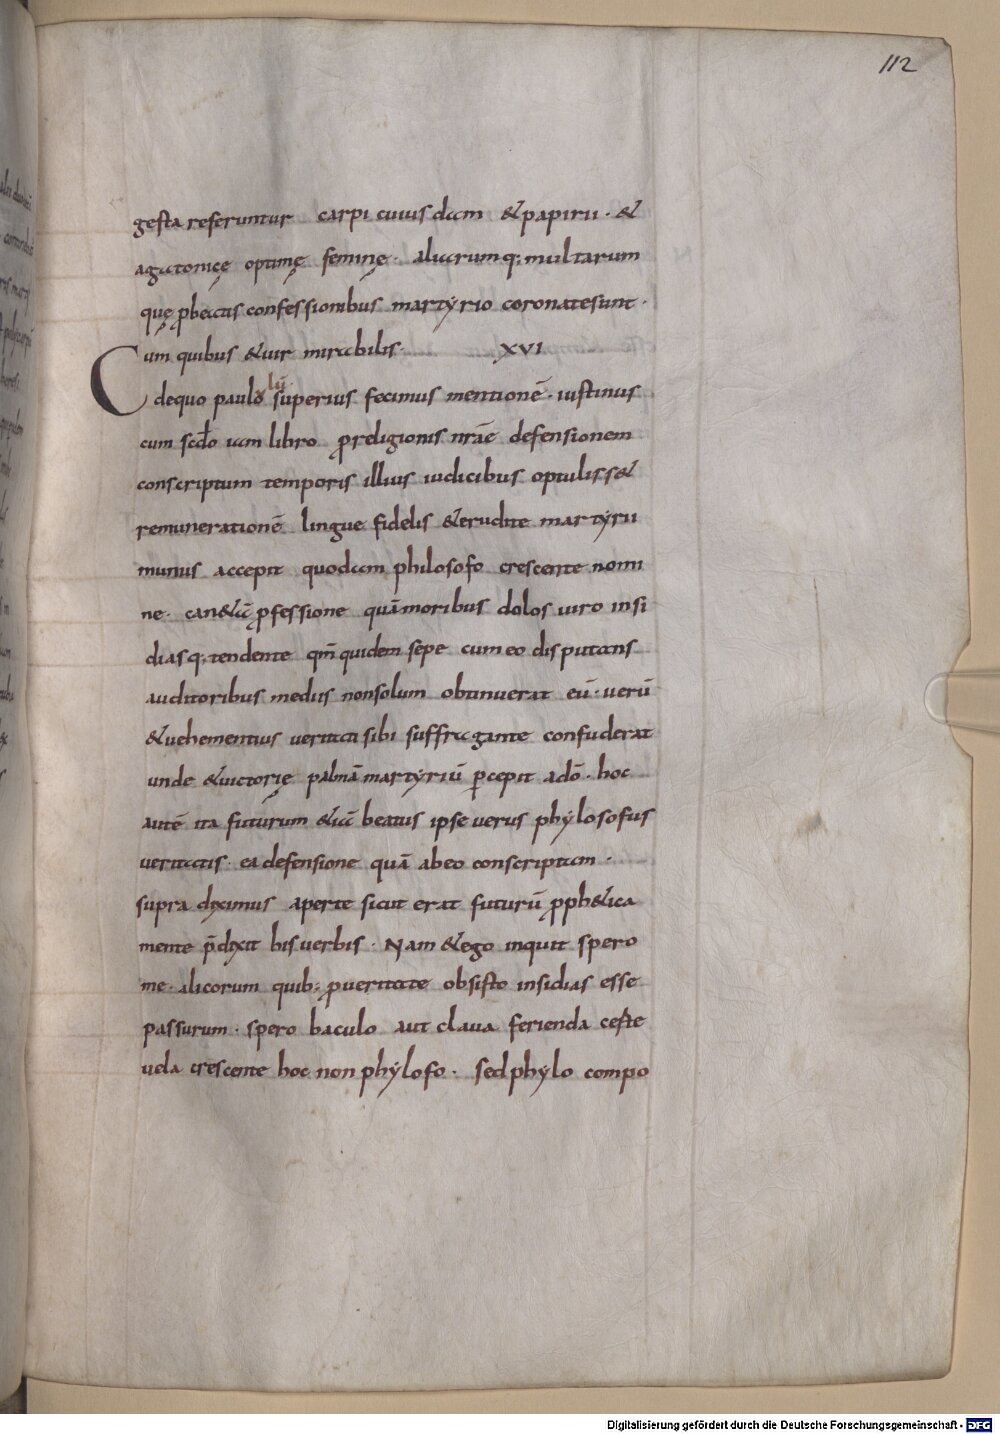 112
gesta referuntur carpi cuiusdam & papirii · &
agatonicę optimę feminę · aliarumq; multarum
quę p beatis confessionibus martyrio coronate sunt ·
Cum quibus & uir mirabilis · XVI
de quo paulo lū superius fecimus mentionē · iustinus
cum scdo iam libro p religionis nrāe defensionem
conscriptum temporis illius iudicibus optuliss&
remunerationē lingue fidelis & erudite martyrii
munus accepit quodam philosofo crescente nomi
ne · can&iā pfessione quā moribus dolos uiro insi
diasq; tendente qm̄ quidem sepe cum eo disputans
auditoribus mediis non solum obtinuerat eū · uerū
& uehementius ueritati sibi suffragante confuderat
unde & uictorię palmā martyriū pcepit a dō · hoc
autē ita futurum &iā beatus ipse uerus phylosofus
ueritatis · ea defensione quā ab eo conscriptam ·
supra diximus aperte sicut erat futurū pph&ica
mente p̄dixit his uerbis · Nam & ego inquit spero
me · alicorum quib; p ueritate obsisto insidias esse
passurum · spero baculo aut claua ferienda ceste
uel a crescente hoc non phylofo · sed phylo compo
Digitalisierung gefördert durch die Deutsche Forschungsgemeinschaft - DFG